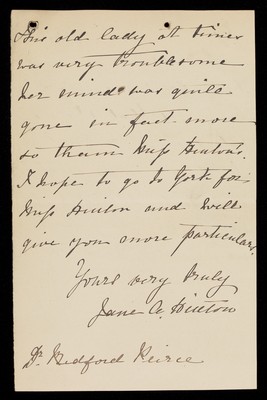 This old lady at times
was very troublesome
her mind was quite
gone in fact more
so than Miss Hinton's.
I hope to go to York for
Miss Hinton and will
give you more particulars.
Yours very truly
Jane A. Hinton
Dr. Bedford Peirce